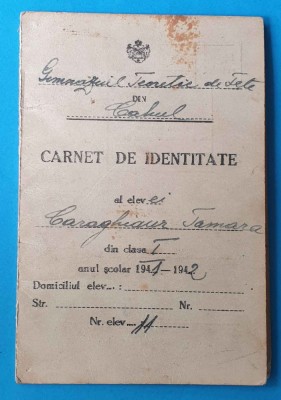 Gimnaziul Teoretic de Fete
DIN
Cahul
CARNET DE IDENTITATE
al elevei
Caraghiaur Tamara
din clasa I
anul școlar 1941-1942
Domiciliul elev...:
Str. Nr.
Nr. elev... 11